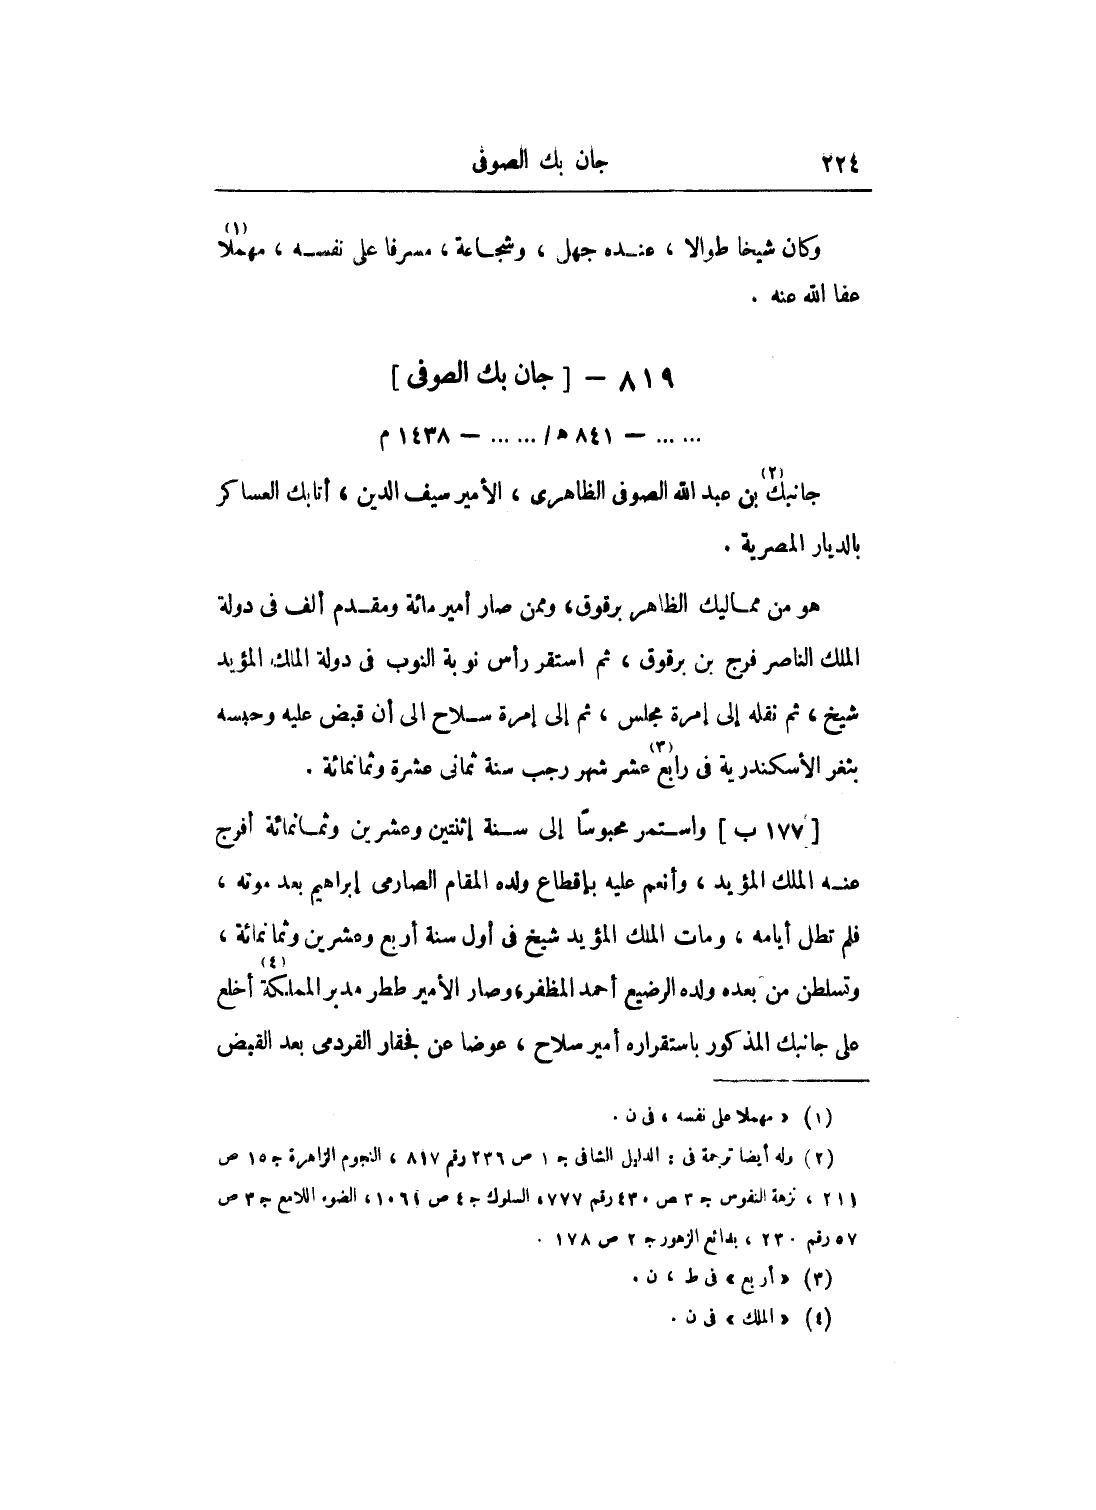 ٢٢٤ جان بك الصوفى
وكان شيخا طوالا ، عنده جهل ، وشجاعة ، مسرفا على نفسه ، مهملا (١)
عفا الله عنه .
٨١٩ – [ جان بك الصوفى ]
... ... – ٨٤١ ه / ... ... – ١٤٣٨ م
جانبك (٢) بن عبد الله الصوفى الظاهرى ، الأمير سيف الدين ، أتابك العساكر
بالديار المصرية .
هو من مماليك الظاهر برقوق ، وممن صار أمير مائة ومقدم ألف فى دولة
الملك الناصر فرج بن برقوق ، ثم استقر رأس نوبة النوب فى دولة الملك المؤيد
شيخ ، ثم نقله إلى إمرة مجلس ، ثم إلى إمرة سلاح الى أن قبض عليه وحبسه
بثغر الأسكندرية فى رابع (٣) عشر شهر رجب سنة ثمانى عشرة وثمانمائة .
[ ١٧٧ ب ] واستمر محبوسًا إلى سنة إثنتين وعشرين وثمانمائة أفرج
عنه الملك المؤيد ، وأنعم عليه بإقطاع ولده المقام الصارمى إبراهيم بعد موته ،
فلم تطل أيامه ، ومات الملك المؤيد شيخ فى أول سنة أربع وعشرين وثمانمائة ،
وتسلطن من بعده ولده الرضيع أحمد المظفر ، وصار الأمير ططر مدبر المملكة (٤) أخلع
على جانبك المذكور باستقراره أمير سلاح ، عوضا عن قجقار القردمى بعد القبض
(١) « مهملا على نفسه ، فى ن .
(٢) وله أيضا ترجمة فى : الدليل الشافى ج ١ ص ٢٣٦ رقم ٨١٧ ، النجوم الزاهرة ج ١٥ ص
٢١١ ، نزهة النفوس ج ٣ ص ٤٣٠ رقم ٧٧٧ ، السلوك ج ٤ ص ١٠٦١ ، الضوء اللامع ج ٣ ص
٥٧ رقم ٢٣٠ ، بدائع الزهور ج ٢ ص ١٧٨ .
(٣) « أربع » فى ط ، ن .
(٤) « الملك » فى ن .